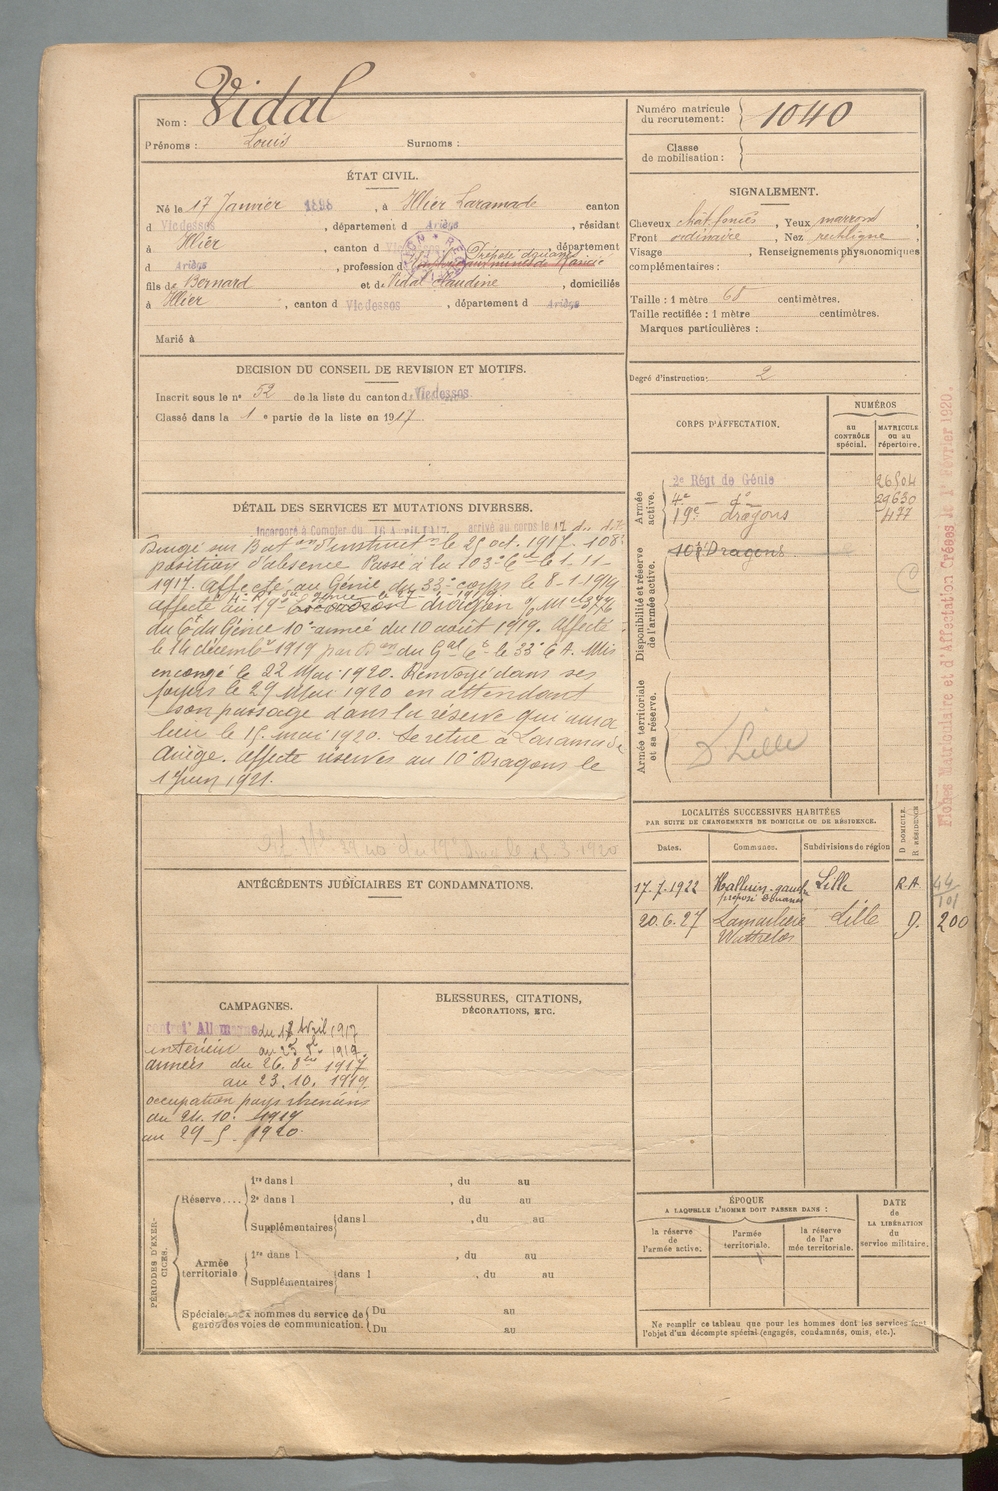 Nom : Vidal
Prénoms : Louis Surnoms :
Numéro matricule du recrutement : 1040
Classe de mobilisation :
ÉTAT CIVIL.
Né le 17 Janvier 1898, à Illier Laramade canton
d Vicdessos, département d Ariège, résidant
à Illier, canton d Vicdessos, département
d Ariège, profession d Préposé douanes
fils de Bernard et de Vidal Claudine, domiciliés
à Illier, canton d Vicdessos, département d Ariège
Marié à
SIGNALEMENT.
Cheveux chât. foncés, Yeux marrons,
Front ordinaire, Nez rectiligne,
Visage Renseignements physionomiques
complémentaires :
Taille : 1 mètre 68 centimètres.
Taille rectifiée : 1 mètre centimètres.
Marques particulières :
Degré d'instruction: 2
DECISION DU CONSEIL DE REVISION ET MOTIFS.
Inscrit sous le nº 52 de la liste du canton de Vicdessos
Classé dans la 1e partie de la liste en 1917
DÉTAIL DES SERVICES ET MUTATIONS DIVERSES.
Incorporé à Compter du 16 Avril 1917. arrivé au corps le 17 du dt
Dirigé sur Bat on d'instruct on le 25 oct. 1917. 108e
position d'absence Passé à la 103e Cie le 1-11-
1917. Affecté au Génie du 33e corps le 8-1-1919
affecté au 19e dragon
du Ct du Génie 10e armée du 10 août 1919. Affecté
le 14 décembre 1919 par du Gal Ct le 33e C.A. Mis
en congé le 22 Mai 1920. Renvoyé dans ses
foyers le 29 Mai 1920 en attendant
son passage dans la réserve qui aura
lieu le 15 mai 1920. Se retire à Laramade
Ariège. Affecté réserves au 10e Dragons le
1 Juin 1921.
CORPS D'AFFECTATION.
NUMÉROS
au CONTRÔLE spécial.
MATRICULE ou au répertoire.
Armée active.
2e Régt de Génie 26504
4e — do 29630
19e dragons 477
Disponibilité et réserve de l'armée active.
10e Dragons
Armée territoriale et sa réserve.
Lille
Fiches Matriculaire et d'Affectation Créées le 1er Février 1920.
LOCALITÉS SUCCESSIVES HABITÉES
PAR SUITE DE CHANGEMENTS DE DOMICILE OU DE RÉSIDENCE.
D DOMICILE. R RÉSIDENCE
Dates. Communes. Subdivisions de région
17.7.1922 Halluin préposé Douanes Lille R.A
20.6.27 Wattrelos Lille D. 200
ANTÉCÉDENTS JUDICIAIRES ET CONDAMNATIONS.
CAMPAGNES.
contre l'Allemagne du 17 Avril 1917
intérieur
armées du 26. 8bre 1917
au 23. 10. 1919
occupation pays rhénans
du 24. 10. 1919
au 29 - 5 - 1920
BLESSURES, CITATIONS,
DÉCORATIONS, ETC.
PÉRIODES D'EXERCICES.
Réserve....
1re dans l , du au
2e dans l , du au
Supplémentaires dans l , du au
Armée territoriale
1re dans l , du au
Supplémentaires dans l , du au
Spéciales aux hommes du service de garde des voies de communication.
Du au
Du au
ÉPOQUE
A LAQUELLE L'HOMME DOIT PASSER DANS :
la réserve de l'armée active.
l'armée territoriale.
la réserve de l'armée territoriale.
DATE de LA LIBÉRATION du service militaire.
Ne remplir ce tableau que pour les hommes dont les services font
l'objet d'un décompte spécial (engagés, condamnés, omis, etc.).